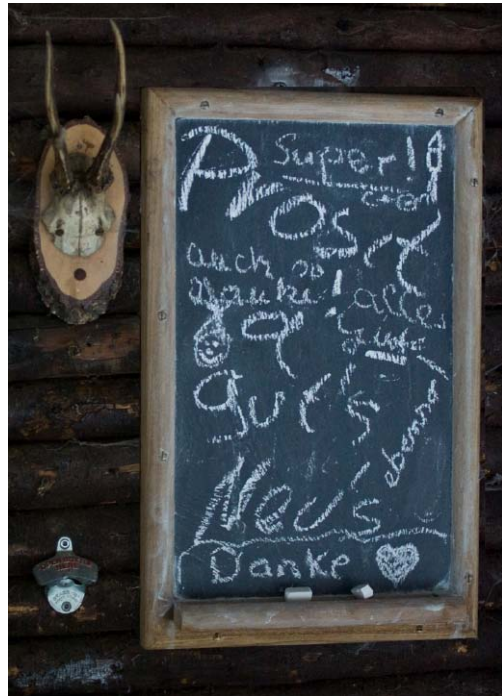 Super!
Prosit
auch so
danke!
alles
gute
a
gut's
ebenso
Neus
Danke